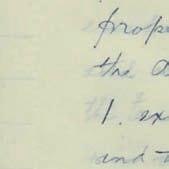 prope
the a
1. ex
and t